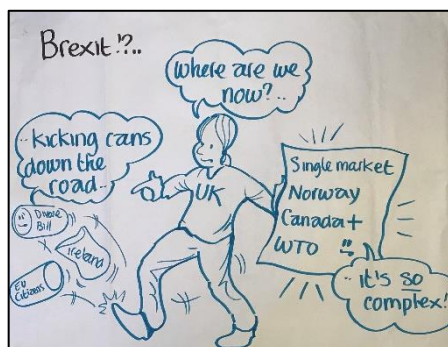 Brexit!?..
where are we
now?..
..kicking cans
down the
road..
Divorce
Bill
Ireland
EU
Citizens
UK
Single market
Norway
Canada+
WTO
..it's so
complex!